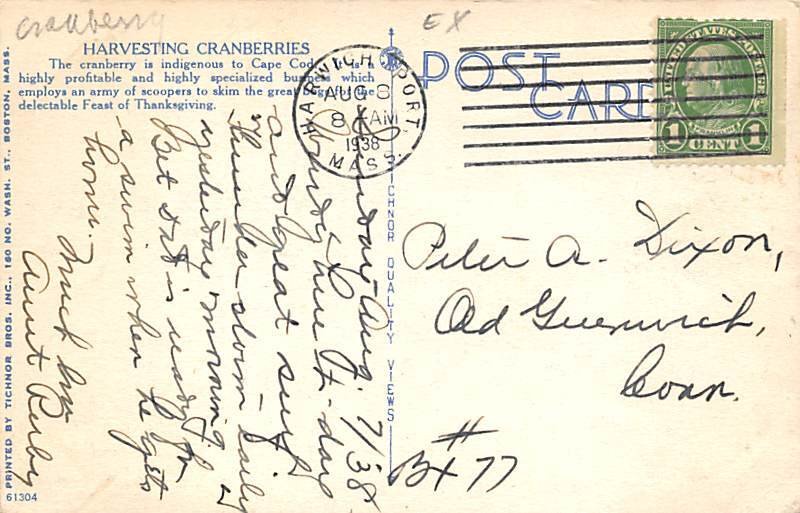 cranberry
EX
HARVESTING CRANBERRIES
The cranberry is indigenous to Cape Cod. It is a
highly profitable and highly specialized business which
employs an army of scoopers to skim the great bogs for the
delectable Feast of Thanksgiving.
POST
CARD
HARWICH PORT,
AUG 8
8 AM
1938
MASS.
UNITED STATES POSTAGE
FRANKLIN
1 CENT 1
Sunday - Aug. 7/38
Windy here to-day
and great surf.
Thunder storm early
yesterday morning.
Bet Dot is ready for
a swim when he gets
home. -
Much love
Aunt Ruby
Peter A. Dixon,
Old Greenwich,
Conn.
#
Bx 77
PRINTED BY TICHNOR BROS. INC., 160 NO. WASH. ST., BOSTON, MASS.
TICHNOR QUALITY VIEWS
61304